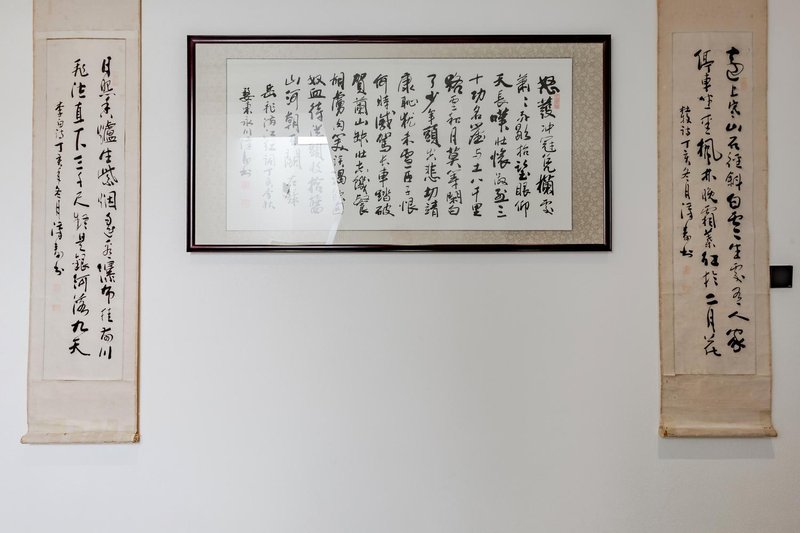 遠上寒山石徑斜白雲生處有人家
停車坐愛楓林晚霜葉紅於二月花
牧詩丁亥冬月
怒髮冲冠凭欄處
蕭〻雨歇抬望眼仰
天長嘯壯懷激烈三
十功名塵与土八千里
路雲和月莫等閒白
了少年頭空悲切靖
康恥犹未雪臣子恨
何時滅駕長車踏破
賀蘭山缺壯志饑餐
胡虜肉笑談渴飲匈
奴血待從頭收拾舊
山河朝天闕
岳飛满江红詞丁亥季秋
日照香爐生紫烟遥看瀑布挂前川
飛流直下三千尺疑是銀河落九天
李白詩丁亥冬月